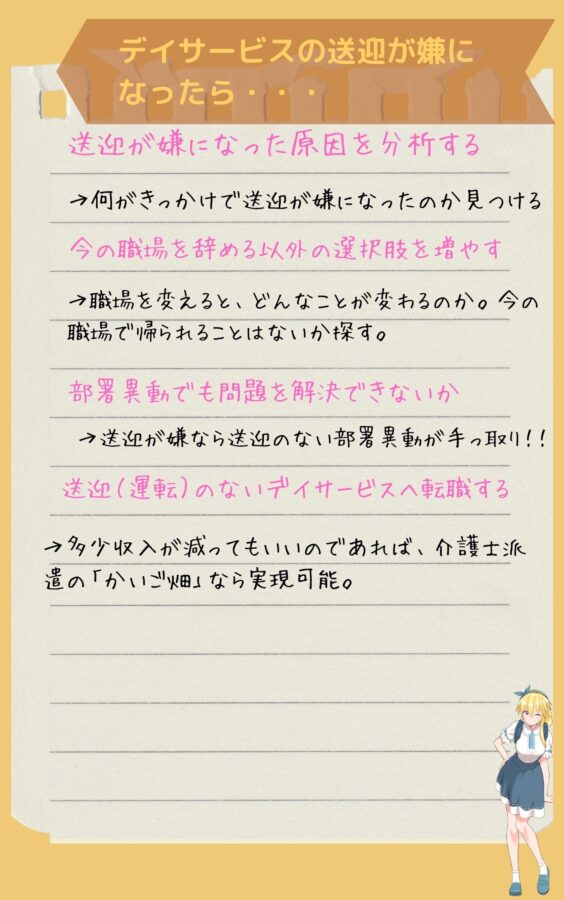 デイサービスの送迎が嫌に
なったら・・・
送迎が嫌になった原因を分析する
→何がきっかけで送迎が嫌になったのか見つける
今の職場を辞める以外の選択肢を増やす
→職場を変えると、どんなことが変わるのか。今の
職場で帰られることはないか探す。
部署異動でも問題を解決できないか
→送迎が嫌なら送迎のない部署異動が手っ取り!!
送迎(運転)のないデイサービスへ転職する
→多少収入が減ってもいいのであれば、介護士派
遣の「かいご畑」なら実現可能。